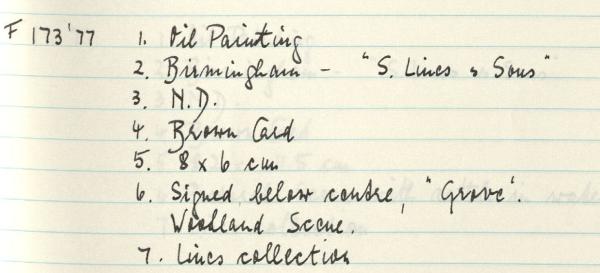 F 173'77 1. Oil Painting
2. Birmingham - "S. Lines & Sons"
3. N.D.
4. Brown Card
5. 8 x 6 cm
6. Signed below centre, "Grove'.
Woodland Scene.
7. Lines collection